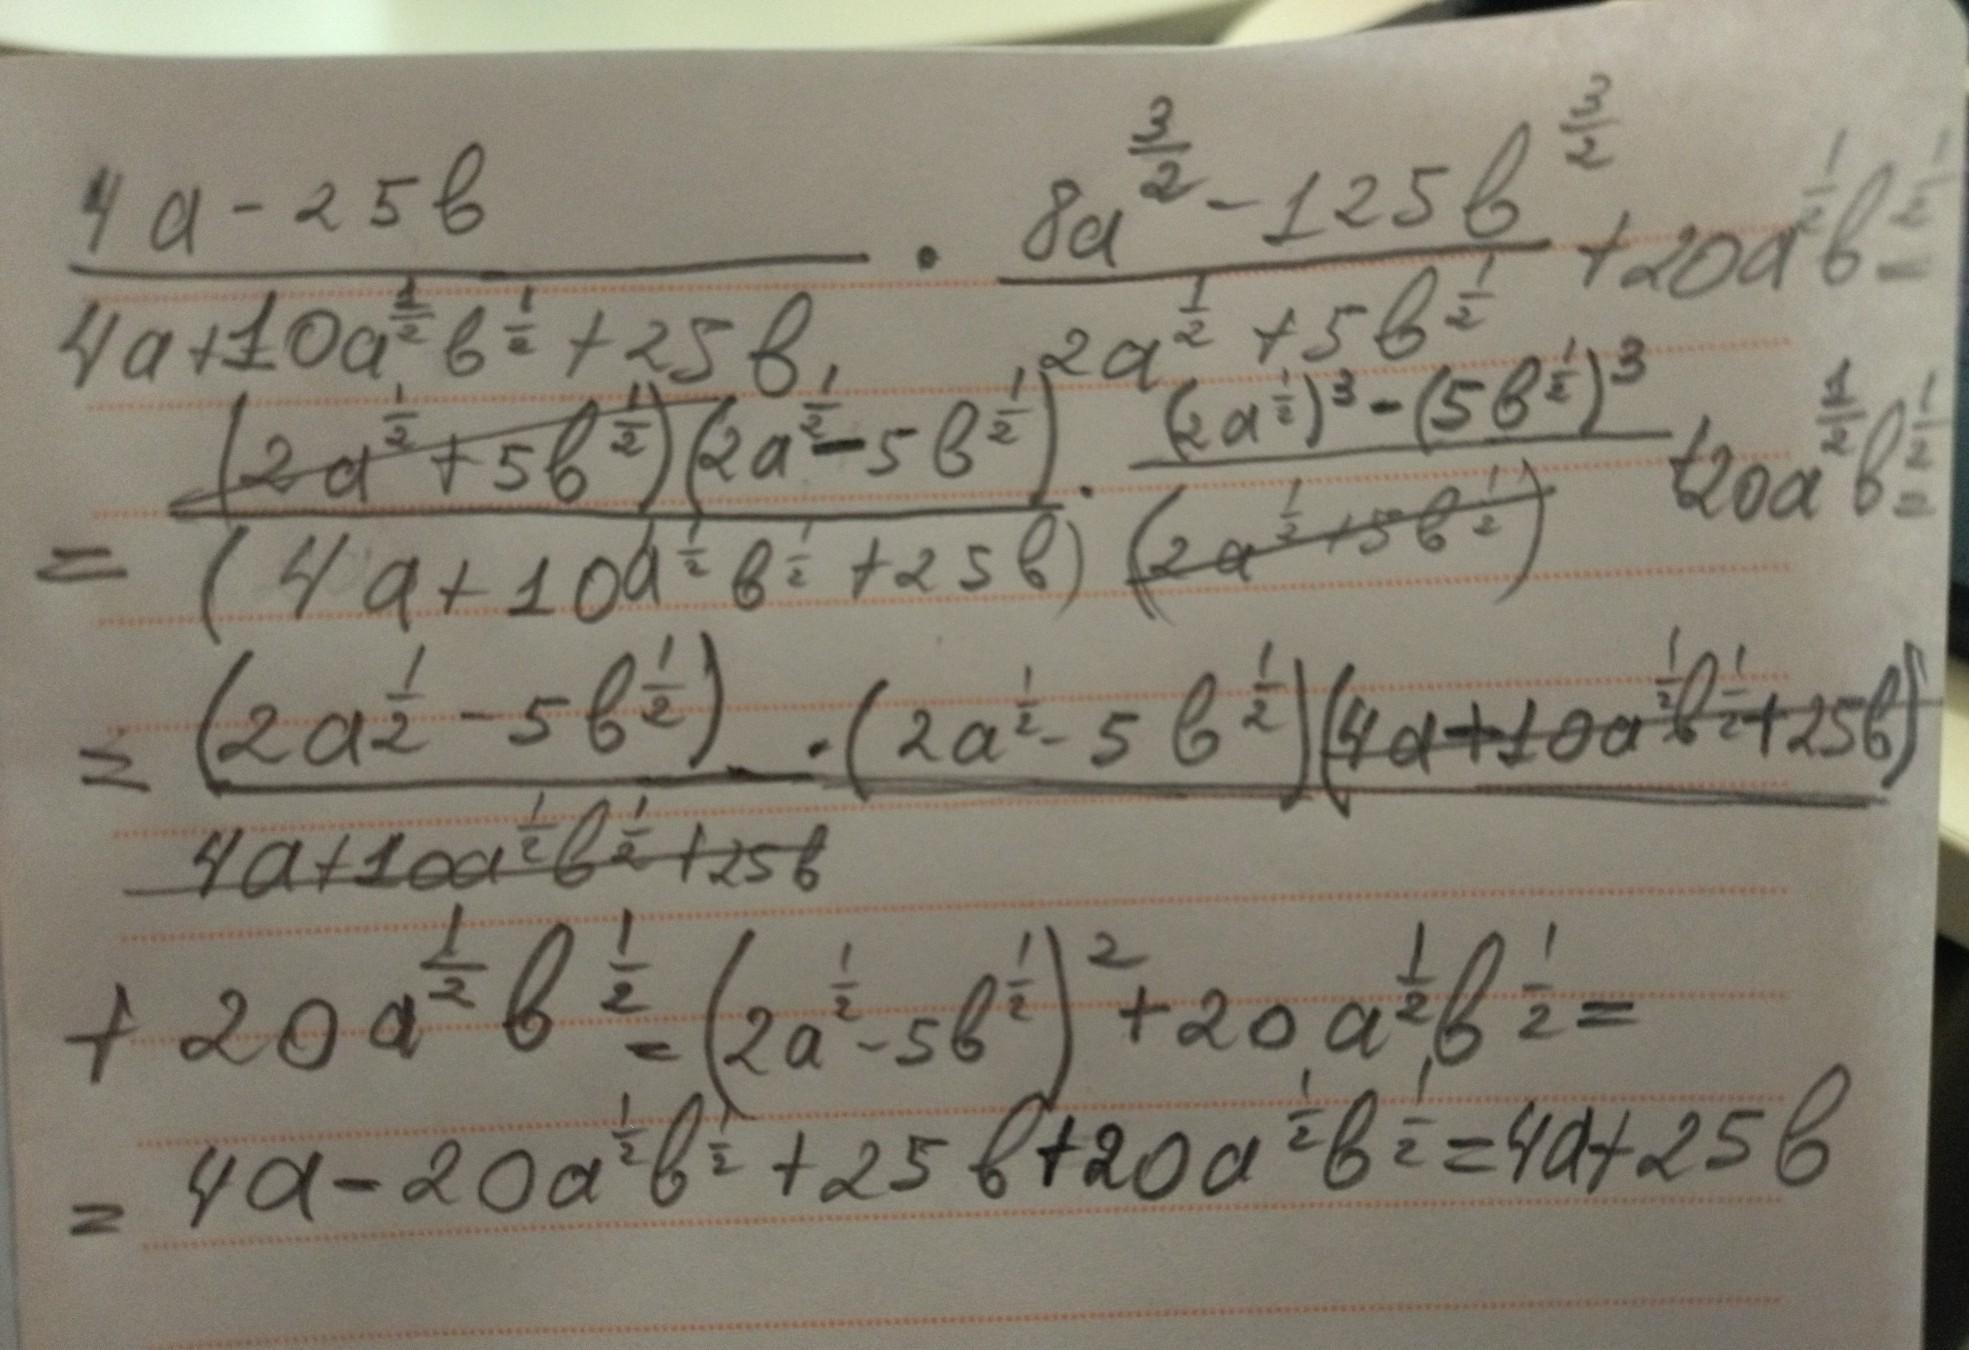 (4a - 25b)/(4a + 10a^(1/2)b^(1/2) + 25b) · (8a^(3/2) - 125b^(3/2))/(2a^(1/2) + 5b^(1/2)) + 20a^(1/2)b^(1/2) =
= ((2a^(1/2) + 5b^(1/2))(2a^(1/2) - 5b^(1/2)))/(4a + 10a^(1/2)b^(1/2) + 25b) · ((2a^(1/2))^3 - (5b^(1/2))^3)/(2a^(1/2) + 5b^(1/2)) + 20a^(1/2)b^(1/2) =
= ((2a^(1/2) - 5b^(1/2)) · (2a^(1/2) - 5b^(1/2))(4a + 10a^(1/2)b^(1/2) + 25b))/(4a + 10a^(1/2)b^(1/2) + 25b)
+ 20a^(1/2)b^(1/2) = (2a^(1/2) - 5b^(1/2))^2 + 20a^(1/2)b^(1/2) =
= 4a - 20a^(1/2)b^(1/2) + 25b + 20a^(1/2)b^(1/2) = 4a + 25b